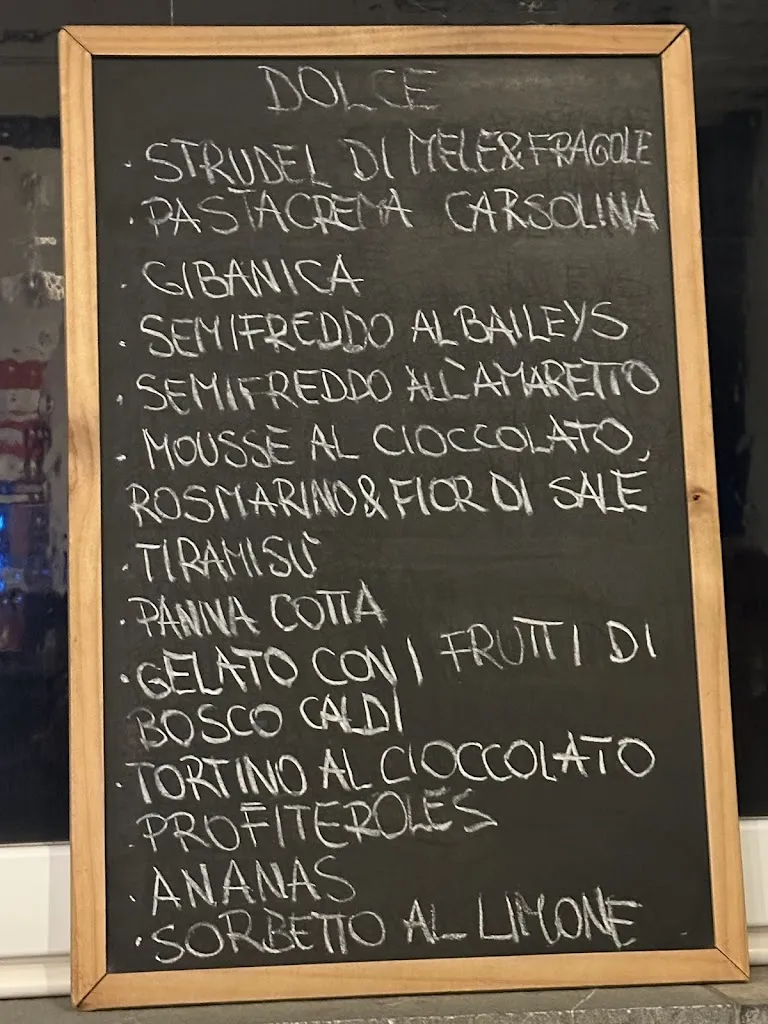 DOLCE
· STRUDEL DI MELE&FRAGOLE
· PASTACREMA CARSOLINA
· GIBANICA
· SEMIFREDDO AL BAILEYS
· SEMIFREDDO ALL'AMARETTO
· MOUSSE AL CIOCCOLATO,
ROSMARINO&FIOR DI SALE
· TIRAMISÙ
· PANNA COTTA
· GELATO CON I FRUTTI DI
BOSCO CALDI
· TORTINO AL CIOCCOLATO
· PROFITEROLES
· ANANAS
· SORBETTO AL LIMONE